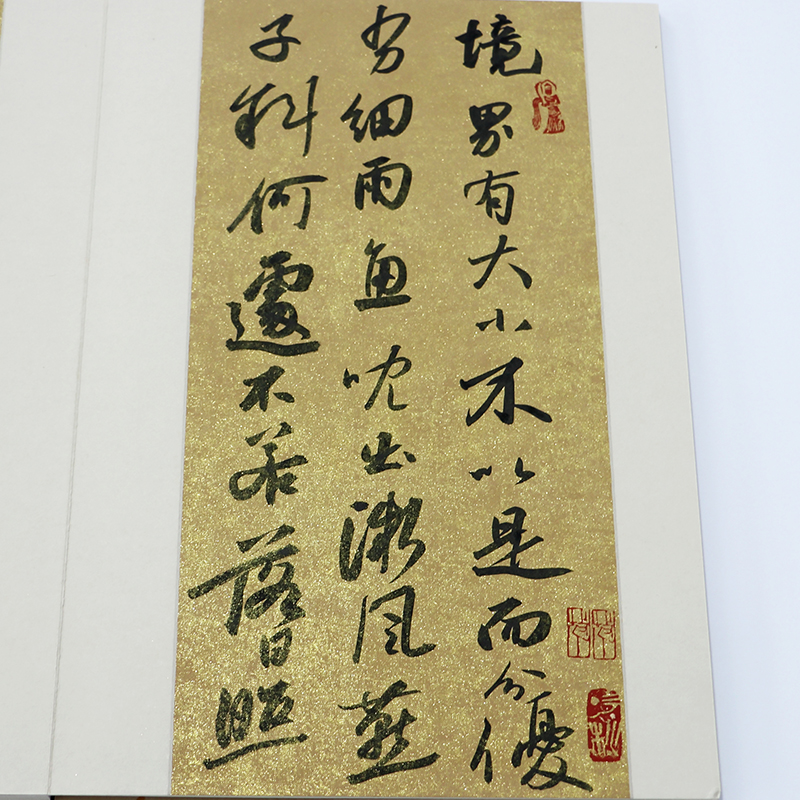 境界有大小不以是而分優
劣細雨魚兒出微風燕
子斜何遽不若落日照